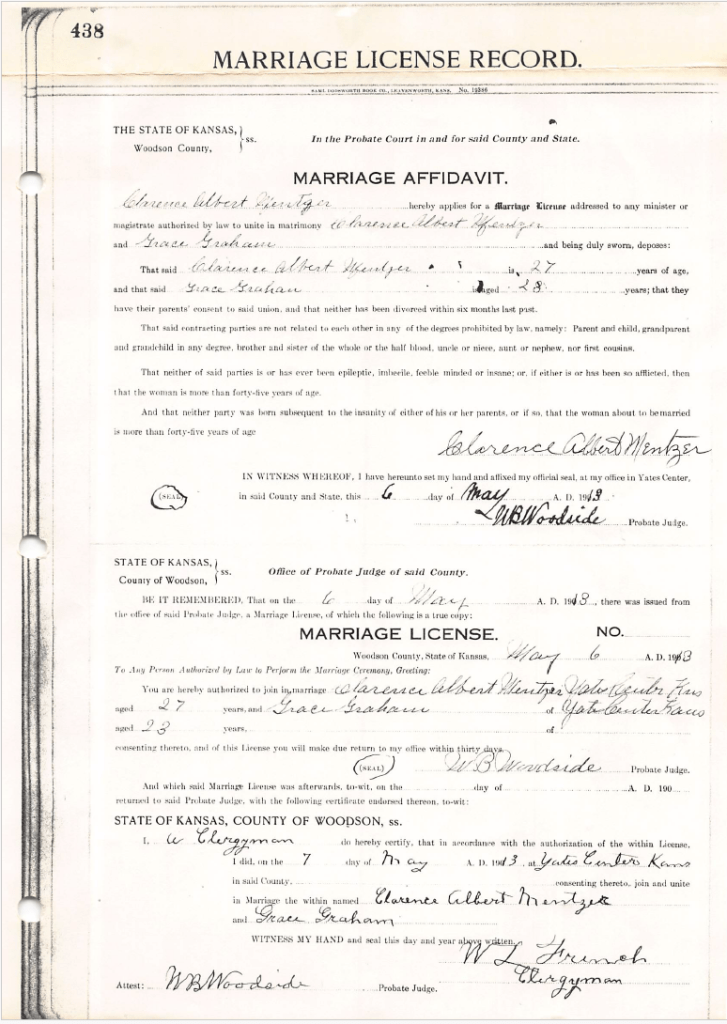 438
MARRIAGE LICENSE RECORD.
SAML DODSWORTH BOOK CO., LEAVENWORTH, KANS. No. 19386
THE STATE OF KANSAS, } ss. In the Probate Court in and for said County and State.
Woodson County,
MARRIAGE AFFIDAVIT.
Clarence Albert Mentzer hereby applies for a Marriage License addressed to any minister or
magistrate authorized by law to unite in matrimony Clarence Albert Mentzer
and Grace Graham and being duly sworn, deposes:
That said Clarence Albert Mentzer is 27 years of age,
and that said Grace Graham is aged 23 years; that they
have their parents' consent to said union, and that neither has been divorced within six months last past.
That said contracting parties are not related to each other in any of the degrees prohibited by law, namely: Parent and child, grandparent
and grandchild in any degree, brother and sister of the whole or the half blood, uncle or niece, aunt or nephew, nor first cousins.
That neither of said parties is or has ever been epileptic, imbecile, feeble minded or insane; or, if either is or has been so afflicted, then
that the woman is more than forty-five years of age.
And that neither party was born subsequent to the insanity of either of his or her parents, or if so, that the woman about to be married
is more than forty-five years of age
Clarence Albert Mentzer
IN WITNESS WHEREOF, I have hereunto set my hand and affixed my official seal, at my office in Yates Center,
(SEAL) in said County and State, this 6 day of May A. D. 1913
WB Woodside Probate Judge.
STATE OF KANSAS, } ss. Office of Probate Judge of said County.
County of Woodson,
BE IT REMEMBERED, That on the 6 day of May A. D. 1913, there was issued from
the office of said Probate Judge, a Marriage License, of which the following is a true copy:
MARRIAGE LICENSE. NO.
Woodson County, State of Kansas, May 6 A. D. 1913
To Any Person Authorized by Law to Perform the Marriage Ceremony, Greeting:
You are hereby authorized to join in marriage Clarence Albert Mentzer Yates Center Kans
aged 27 years, and Grace Graham of Yates Center Kans
aged 23 years, of
consenting thereto, and of this License you will make due return to my office within thirty days.
(SEAL) W B Woodside Probate Judge.
And which said Marriage License was afterwards, to-wit, on the day of A. D. 190
returned to said Probate Judge, with the following certificate endorsed thereon, to-wit:
STATE OF KANSAS, COUNTY OF WOODSON, ss.
I, A Clergyman do hereby certify, that in accordance with the authorization of the within License,
I did, on the 7 day of May A. D. 1913, at Yates Center Kans
in said County. consenting thereto, join and unite
in Marriage the within named Clarence Albert Mentzer
and Grace Graham
WITNESS MY HAND and seal this day and year above written.
W L French
Clergyman
Attest: WB Woodside Probate Judge.